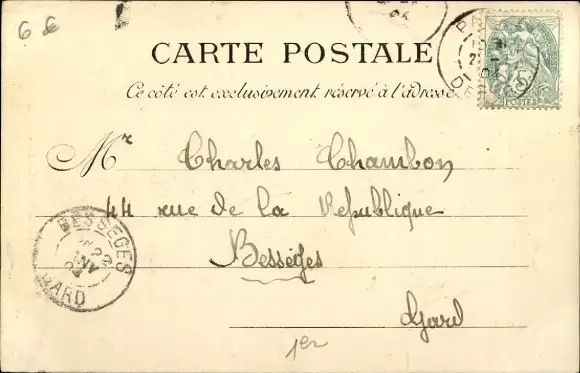 6 €
CARTE POSTALE
Ce côté est exclusivement réservé à l'adresse
Mr Charles Chambon
44 rue de la Republique
Bessèges
Gard
BESSEGES
22
JANV
GARD
POSTES
1er